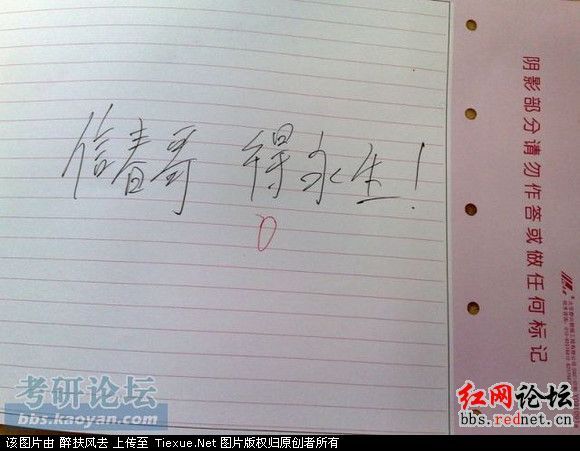 信春哥 得永生!
0
阴影部分请勿作答或做任何标记
考研论坛
bbs.kaoyan.com
红网论坛
bbs.rednet.cn
该图片由 醉扶风去 上传至 Tiexue.Net 图片版权归原创者所有